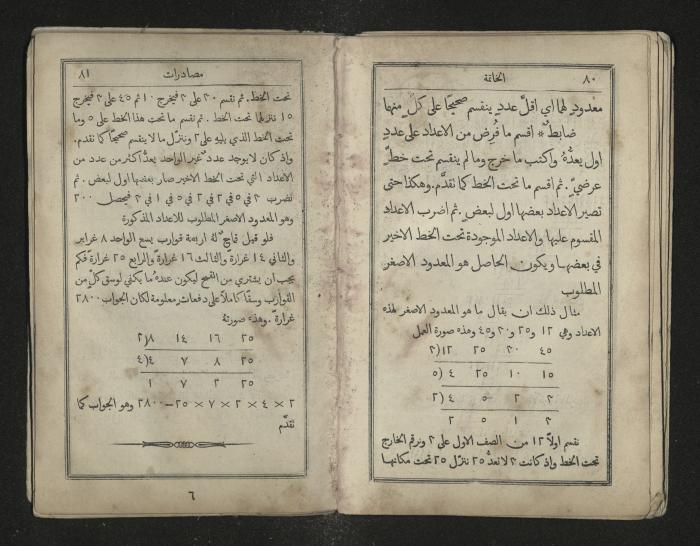 ٨٠ الخاتمة
معدودٍ لها اي اقلَّ عددٍ ينقسم صحيحًا على كلٍّ منها
ضابطٌ * اقسم ما فُرِض من الاعداد على عددٍ
اول يعدُّهُ واكتب ما خرج وما لم ينقسم تحت خطٍّ
عرضيٍّ . ثم اقسم ما تحت الخط كما تقدَّم . وهكذا حتى
تصير الاعداد بعضها اول لبعضٍ . ثم اضرب الاعداد
المقسوم عليها والاعداد الموجودة تحت الخط الاخير
في بعضها ويكون الحاصل هو المعدود الاصغر
المطلوب
مثال ذلك ان يقال ما هو المعدود الاصغر لهذه
الاعداد وهي ١٢ و٢٥ و٢٠ و٤٥ وهذه صورة العمل
٤٥ ٢٠ ٢٥ ١٢(٣
١٥ ١٠ ٢٥ ٤ (٥
٣ ٢ ٥ ٤ (٢
٣ ١ ٥ ٢
نقسم اولًا ١٢ من الصف الاول على ٣ ونرقم الخارج
تحت الخط واذ كانت ٣ لا تعدُّ ٢٥ ننزل ٢٥ تحت مكانها
مصادرات ٨١
تحت الخط . ثم نقسم
تحت الخط الذي يليه على ٢ وننزل ما لا ينقسم صحيحًا كما تقدم .
واذ كان لا يوجد عددٌ غير الواحد يعدُّ اكثر من عدد من
الاعداد التي تحت الخط الاخير صار بعضها اول لبعض . ثم
وهو المعدود الاصغر المطلوب للاعداد المذكورة
فلو قيل فلاحٌ لهُ اربعة قوارب يسع الواحد ٨ غراير
والثاني ١٤ غرارة والثالث ١٦ غرارة والرابع ٢٥ غرارة فكم
يجب ان يشتري من القمح ليكون عندهُ ما يكفي لوسق كلٍّ من
القوارب وسقًا كاملًا على دفعات معلومة لكان الجواب ٢٨٠٠
غرارة . وهذه صورتهُ
٢٥ ١٦ ١٤ ٨(٢
٢٥ ٨ ٧ ٤(٤
٢٥ ٢ ٧ ١
٢ × ٤ × ٢ × ٧ × ٢٥ = ٢٨٠٠ وهو الجواب كما
تقدَّم
٦